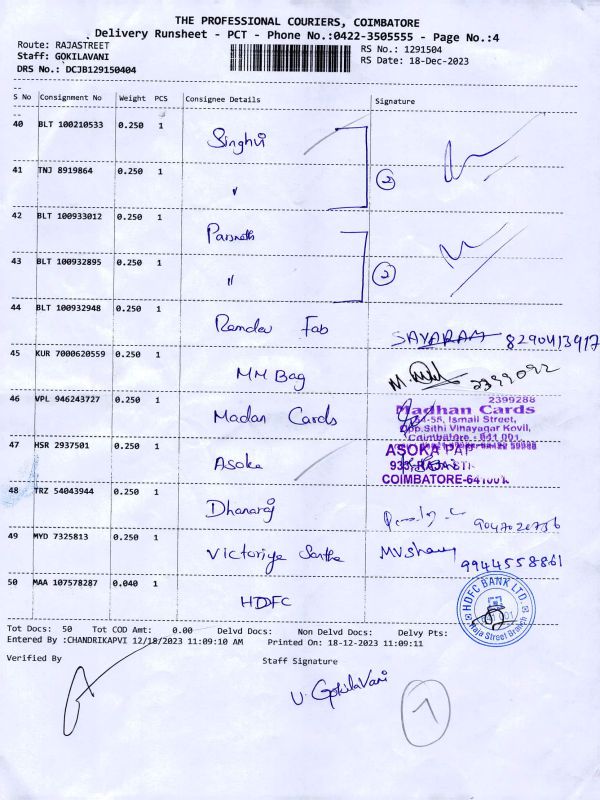 THE PROFESSIONAL COURIERS, COIMBATORE
Delivery Runsheet - PCT - Phone No.:0422-3505555 - Page No.:4
Route: RAJASTREET
Staff: GOKILAVANI
DRS No.: DCJB129150404
RS No.: 1291504
RS Date: 18-Dec-2023
S No Consignment No Weight PCS Consignee Details Signature
40 BLT 100210533 0.250 1 Singhvi
41 TNJ 8919864 0.250 1 "
2
42 BLT 100933012 0.250 1 Parsnath
43 BLT 100932895 0.250 1 "
2
44 BLT 100932948 0.250 1 Ramdev Fab SAYARAM 8290413917
45 KUR 7000620559 0.250 1 MM Bag 2399092
46 VPL 946243727 0.250 1 Madan Cards
2399288
Madhan Cards
Ismail Street,
Opp.Sithi Vinayagar Kovil,
Coimbatore - 641 001
47 HSR 2937501 0.250 1 Asoka
ASOKA PAP
COIMBATORE-641001
48 TRZ 54043944 0.250 1 Dhanaraj
49 MYD 7325813 0.250 1 Victoriya 9944558861
50 MAA 107578287 0.040 1 HDFC
HDFC BANK LTD.
Raja Street Branch
Tot Docs: 50 Tot COD Amt: 0.00 Delvd Docs: Non Delvd Docs: Delvy Pts:
Entered By :CHANDRIKAPVI 12/18/2023 11:09:10 AM Printed On: 18-12-2023 11:09:11
Verified By Staff Signature
V. Gokilavani
7